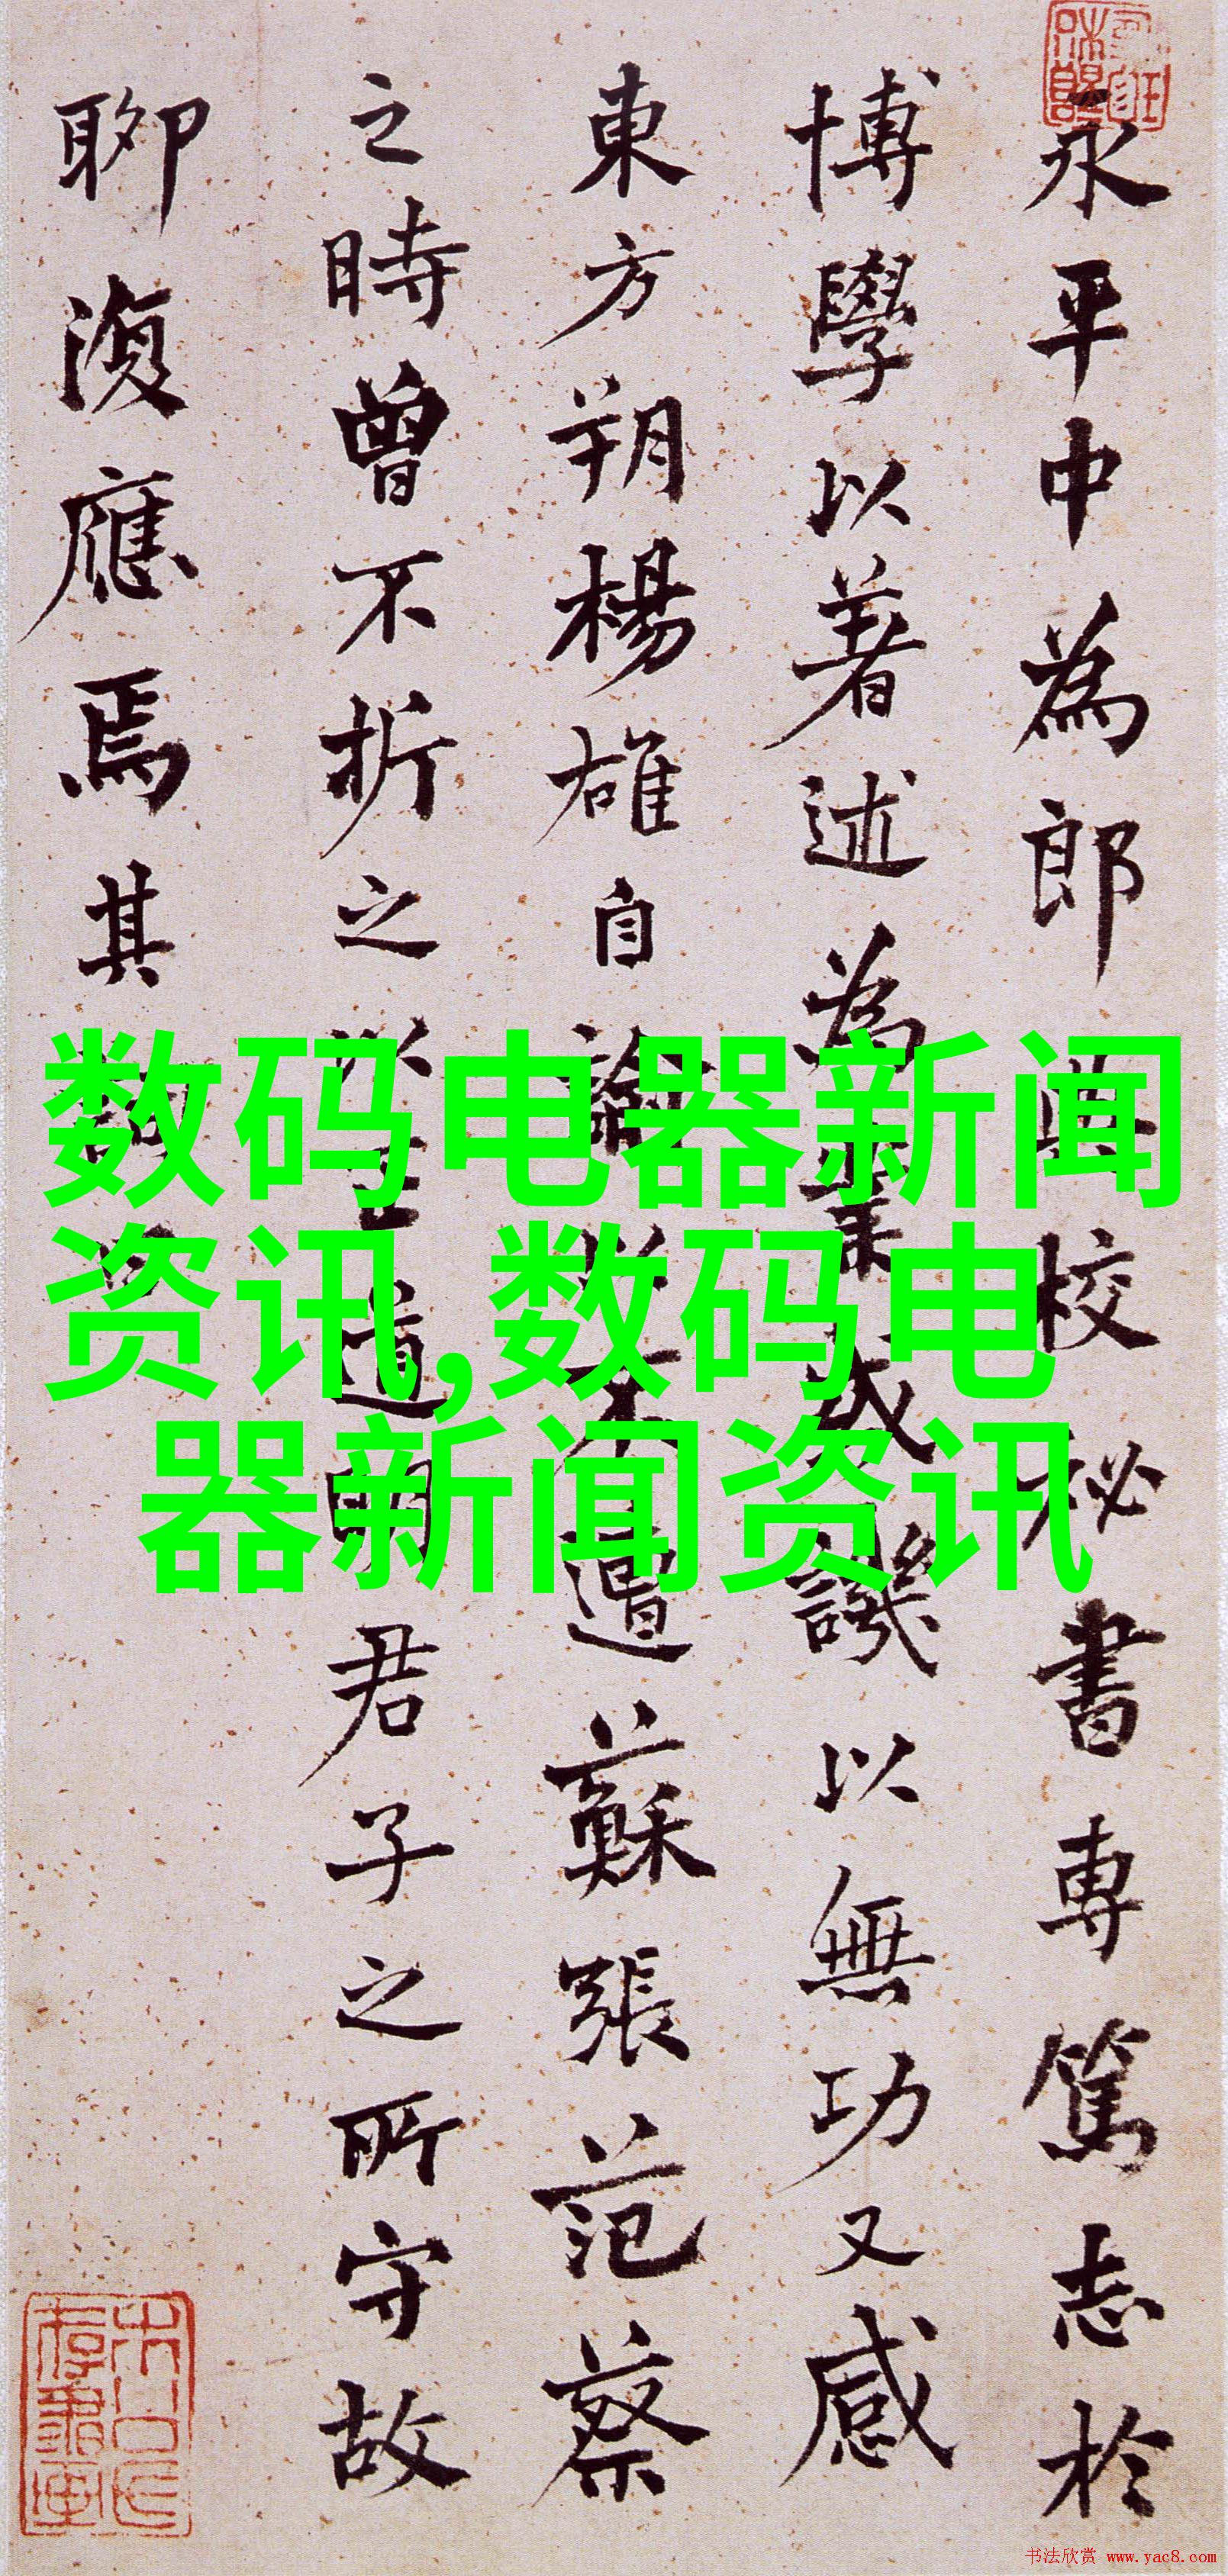 永平中為郎典校秘書專篤志於
博學以著述為業或譏以無功又感
東方朔楊雄自不遭蘇張范蔡
之時曾不折之以正道明君子之所守故
聊復應焉其
数码电器新闻
资讯,数码电
器新闻资讯
书法欣赏 www.yac8.com